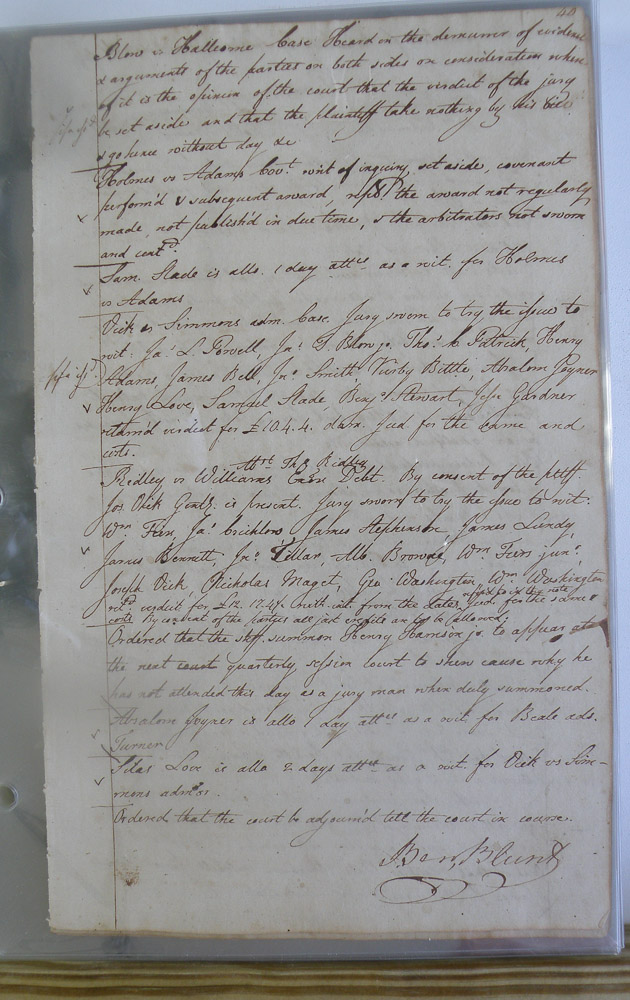 44
Blow vs Hallcome Case Heard on the demurrer of evidence
& arguments of the parties on both sides on consideration where
of it is the opinion of the court that the verdict of the jury
be set aside and that the plaintiff take nothing by his bill
& go hence without day &c
Holmes vs Adams Covt. writ of inquiry set aside, covenant
perform'd & subsequent award, the award not regularly
made, not publish'd in due time, & the arbitrators not sworn
and contd.
Sam. Slade is allo. 1 day attce as a wit. for Holmes
vs Adams
Dick vs Simmons adm. Case. Jury sworn to try the issue to
wit: Ja: L. Powell, Jno. T Blow jr, Thos. C Patrick, Henry
Adams, James Bell, Jno. Smith Kirby Bittle, Absalom Joyner
Henry Love, Samuel Slade, Benj. Stewart, Jesse Gardner
return'd verdict for £10.4.4. dam. Jud for the same and
costs.
Thos Ridley
Ridley vs Williams Exor Debt. By consent of the pltff.
Jos. Dick Gent. is present. Jury sworn to try the issue to wit:
Wm. Fiers, Ja: Cricklow, James Stephenson James Lundy,
James Bennett, Jno. Tillar, Alb. Browne, Wm. Fiers junr.
Joseph Dick, Nicholas Maget, Geo: Washington, Wm. Washington
retd. verdict for £12.17.4½ with int. from the dates Jud. for the same &
costs By consent of the parties all just credits are to be allowed,
Ordered that the shff. summon Henry Harrison jr. to appear at
the next court quarterly session court to shew cause why he
has not attended this day as a jury man when duly summoned.
Absalom Joyner is allo 1 day attce as a wit. for Beale ads.
Turner
Silas Love is allo 2 days attce as a wit. for Dick vs Sim-
mons admor.
Ordered that the court be adjourn'd till the court in course.
Ben, Blunt